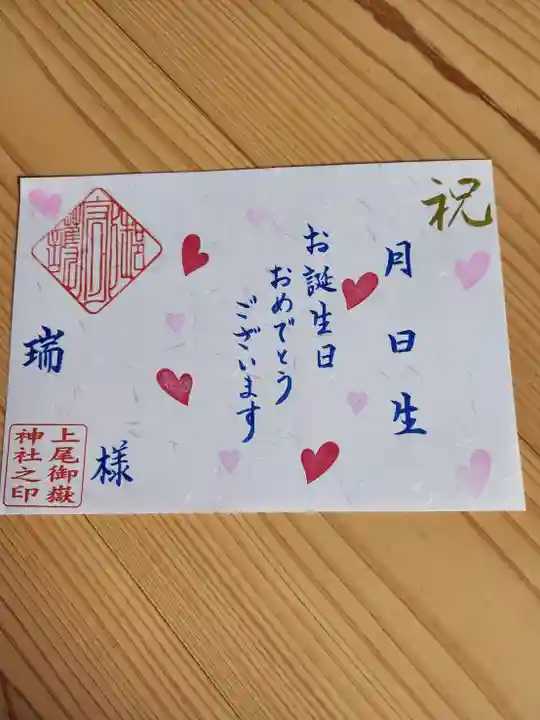 祝
月日生
お誕生日
おめでとう
ございます
瑞
様
上尾御嶽
神社之印